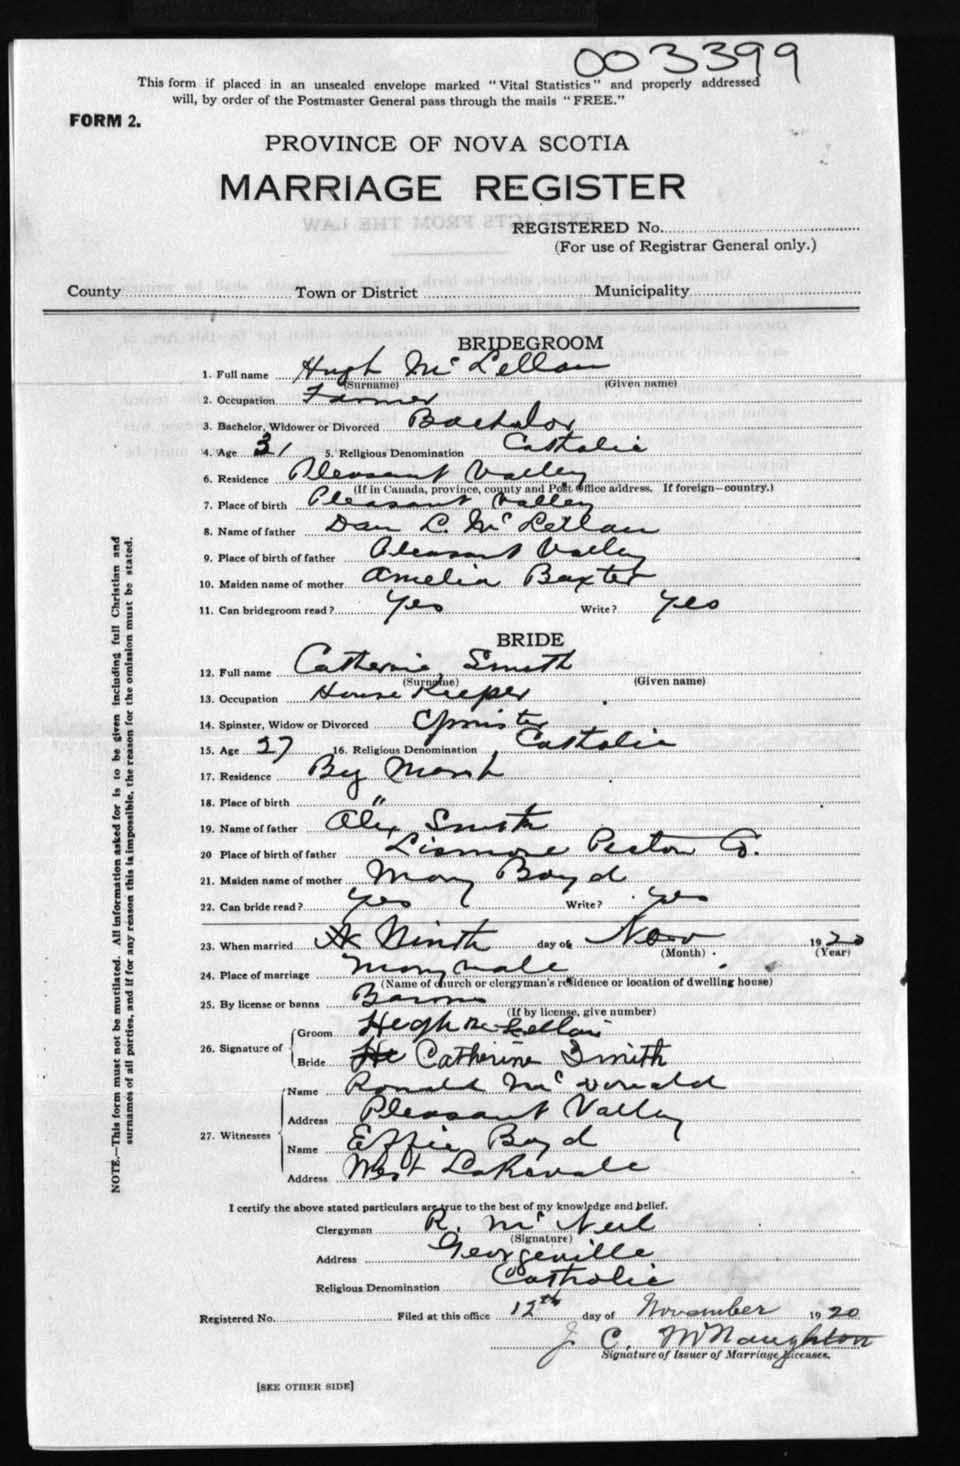 003399
This form if placed in an unsealed envelope marked "Vital Statistics" and properly addressed
will, by order of the Postmaster General pass through the mails "FREE."
FORM 2.
PROVINCE OF NOVA SCOTIA
MARRIAGE REGISTER
EXTRACTS FROM THE LAW
REGISTERED No.
(For use of Registrar General only.)
County Town or District Municipality
BRIDEGROOM
1. Full name Hugh Mc Lellan
(Surname) (Given name)
2. Occupation Farmer
3. Bachelor, Widower or Divorced Bachelor
4. Age 31 5. Religious Denomination Catholic
6. Residence Pleasant Valley
(If in Canada, province, county and Post office address. If foreign—country.)
7. Place of birth Pleasant Valley
8. Name of father Dan C. Mc Lellan
9. Place of birth of father Pleasant Valley
10. Maiden name of mother Amelia Baxter
11. Can bridegroom read? Yes Write? Yes
BRIDE
12. Full name Catherine Smith
(Surname) (Given name)
13. Occupation House Keeper
14. Spinster, Widow or Divorced Spinster
15. Age 27 16. Religious Denomination Catholic
17. Residence Big Marsh
18. Place of birth "
19. Name of father Alex Smith
20 Place of birth of father Lismore Picton Co.
21. Maiden name of mother Mary Boyd
22. Can bride read? yes Write? yes
23. When married Ninth day of Nov 1920
(Month) (Year)
24. Place of marriage Maryvale
(Name of church or clergyman's residence or location of dwelling house)
25. By license or banns Banns
(If by license, give number)
26. Signature of
Groom Hugh McLellan
Bride Catherine Smith
27. Witnesses
Name Ronald McDonald
Address Pleasant Valley
Name Effie Boyd
Address West Lakevale
I certify the above stated particulars are true to the best of my knowledge and belief.
Clergyman R. McNeil
(Signature)
Address Georgeville
Religious Denomination Catholic
Registered No. Filed at this office 12th day of November 1920
J. C. McNaughton
Signature of Issuer of Marriage Licenses.
[SEE OTHER SIDE]
NOTE.—This form must not be mutilated. All information asked for is to be given including full Christian and
surnames of all parties, and if for any reason this is impossible, the reason for the omission must be stated.